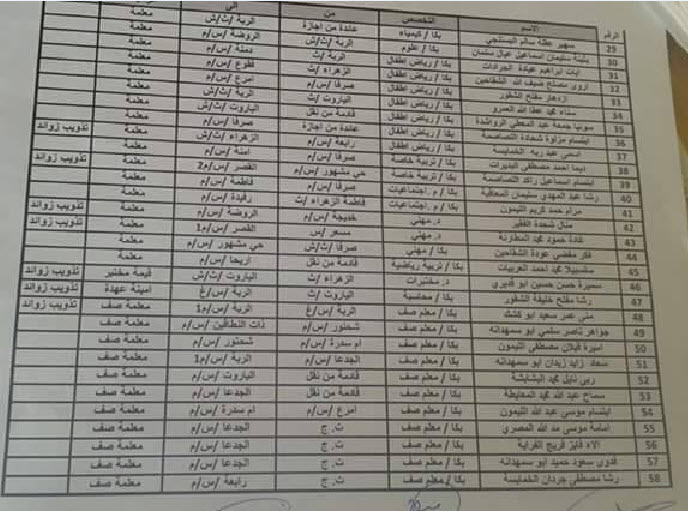 الرقم الاسم التخصص من إلى
29 سهير عطه سالم بكا / كيمياء عائدة من اجازة الربة /ث/ش معلمة
30 سليمان اسماعيل سلمان بكا / علوم الربة /ث/ش الروضة /س/م معلمة
31 ايات ابراهيم الجرادات بكا / رياض اطفال الربة /ث /س/م معلمة
32 اروى مصلح ضيف الله الشقاحين بكا / رياض اطفال الزهراء /ث /س/م معلمة
33 ازدهار مفلح الشقور بكا / رياض اطفال صرفا /س/م امرع /س/م معلمة
34 سناء محمد عطا الله العمرو بكا / رياض اطفال الياروت /ث الربة /ث/ش معلمة
35 سونيا جمعه عبد المعطي الرواشدة بكا / رياض اطفال قادمة من نقل الياروت /ث/ش معلمة
36 ابتسام شحادة بكا / رياض اطفال عائدة من اجازة صرفا /س/م معلمة تذويب زوائد
37 اسمى عبد ربه الختايسة بكا / رياض اطفال رابعة /س/م الزهراء /ث/ش معلمة
38 ديما احمد مصطفى بكا / تربية خاصة صرفا /س/م امنة /س/م معلمة تذويب زوائد
39 ابتسام اسماعيل بكا / تربية خاصة حي مشهور /س/م القصر /س/م2 معلمة
40 رشا عبد المهدي سليمان المعاقبة بكا / م .اجتماعيات صرفا /س/م فاطمة /س/م معلمة
41 مرام حمد كريم الليمون بكا / م .اجتماعيات فاطمة الزهراء /ث رفيدة /س/م معلمة تذويب زوائد
42 منال شحادة الفقير د. مهني خديجة /س/م الروضة /س/م معلمة تذويب زوائد
43 غادة حمود محمد المطارنة د. مهني /س القصر /س/م1 معلمة
44 فكر مفضي عودة الشقاحين بكا / مهني صرفا /ث/ش حي مشهور /س/م معلمة
45 محمد احمد العربيات بكا / تربية رياضية قادمة من نقل اريحا /س/م معلمة
46 سميرة حسن حسين ابو قديري د. مختبرات الزهراء /ث الياروت /ث/ش قيمة مختبر تذويب زوائد
47 رشا مفلح خليفة الشقور بكا / محاسبة الياروت /ث الربة /س/غ امينة عهدة تذويب زوائد
48 منى عمر سعيد ابو كشك بكا / معلم صف الربة /س/غ الربة /س/م1 معلمة صف تذويب زوائد
49 جواهر ناصر سلمي ابو سمهدانه بكا / معلم صف شحتور /س/م ذات النطاقين /س/م معلمة صف
50 اميرة قبلان مصطفى الليمون بكا / معلم صف ام سدرة /س/م شحتور /س/م معلمة صف
51 سعاد زايد زيدان ابو سمهدانه بكا / معلم صف الجدعا /س/م الربة /س/م1 معلمة صف
52 ربى نايل محمد البشابشة بكا / معلم صف قادمة من نقل الياروت /س/م معلمة صف
53 سماح عبد الله محمد المعايطة بكا / معلم صف قادمة من نقل الجدعا /س/م معلمة صف
54 ابتسام موسى عبد الله الليمون بكا / معلم صف امرع /س/م ام سدرة /س/م معلمة صف
55 امامة موسى مد الله المصري بكا / معلم صف ث. ج الجدعا /س/م معلمة صف
56 الاء فايز فريج القراية بكا / معلم صف ث. ج الجدعا /س/م معلمة صف
57 فدوى سعود حميد ابو سمهدانه بكا / معلم صف ث. ج الجدعا /س/م معلمة صف
58 رشا مصطفى جردان الختايسة بكا / معلم صف ث. ج رابعة /س/م معلمة صف